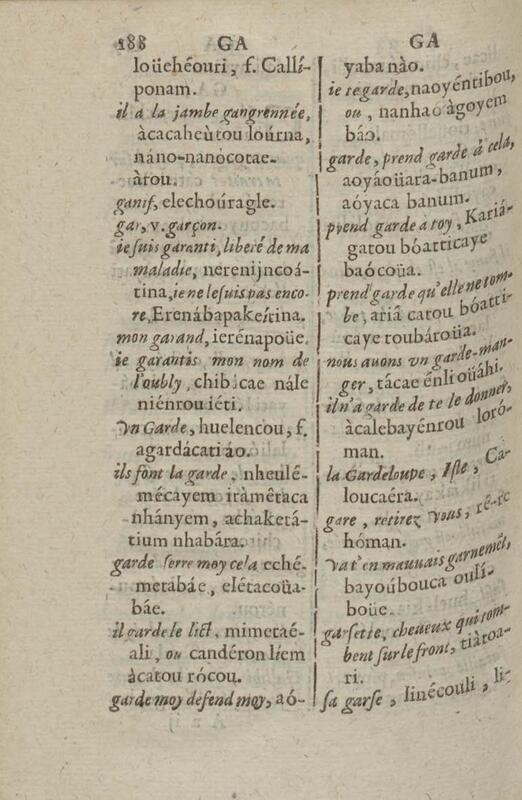 188 GA
loüchéouri, f. Callí-
ponam.
il a la jambe gangrennée,
àcacaheùtou loúrna,
náno-nanócotae-
àrou.
ganif, elechoúragle.
gar, v. garçon.
ie suis garanti, liberé de ma
maladie, nerenijncoá-
tina, ie ne le suis pas enco-
re, Erenábapakeítina.
mon garand, ierénapoüe.
ie garantis mon nom de
l'oubly, chibicae nále
niénrouiéti.
Vn Garde, huelencou, f.
agardácatiáo.
ils font la garde, nheulé-
mécayem iràmêtaca
nhányem, achaketá-
tium nhabára.
garde serre moy cela cché-
metabáe, elétacoüa-
báe.
il garde le lict, mimetaé-
ali, ou candéron liem
àcatou rócou.
garde moy defend moy, aó-
GA
yaba nào.
ie regarde, naoyéntibou,
ou, nanhaó àgoyem
báo.
garde, prend garde à cela,
aoyáoüara-banum,
aóyaca banum.
prend garde a toy, Kariá-
gatou bóatticaye
baócoüa.
prend garde qu'elle ne tom-
be, ariâ catou bóatti-
caye toubároüa.
nous auons vn garde-man-
ger, tácae énli oüáhi.
il n'a garde de te le donner,
àcalebayénrou loró-
man.
la Gardeloupe, Isle, Ca-
loucaéra.
gare, retirez vous, rê-re
hóman.
va t'en mauuais garnemêt,
bayoúbouca oulí-
boüe.
garsette, cheueux qui tom-
bent sur le front, tiàtoa-
ri.
sa garse, linécouli, li-